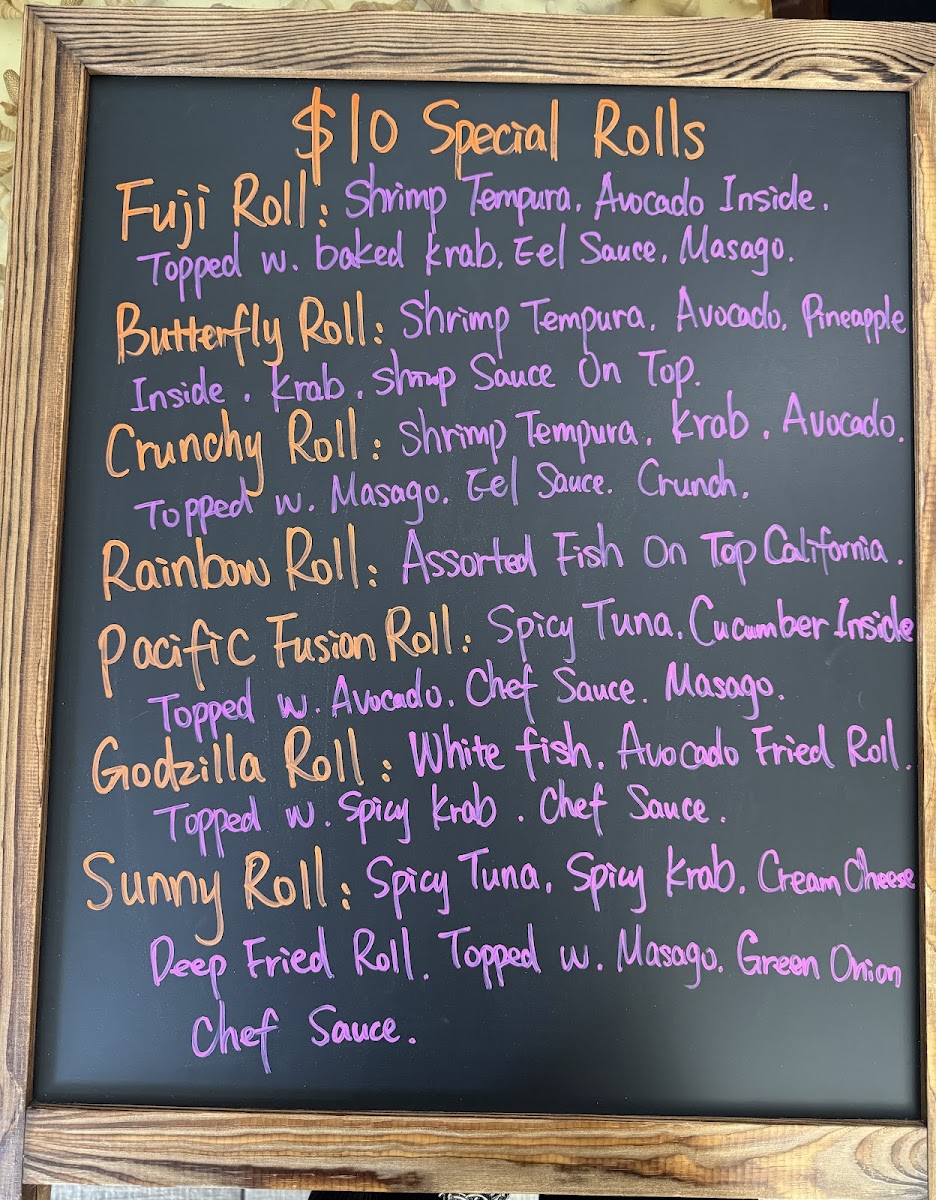 $10 Special Rolls
Fuji Roll: Shrimp Tempura. Avocado Inside.
Topped w. baked krab. Eel Sauce. Masago.
Butterfly Roll: Shrimp Tempura. Avocado. Pineapple
Inside. Krab. Shrimp Sauce On Top.
Crunchy Roll: Shrimp Tempura. Krab. Avocado.
Topped w. Masago. Eel Sauce. Crunch.
Rainbow Roll: Assorted Fish On Top California.
Pacific Fusion Roll: Spicy Tuna. Cucumber Inside
Topped w. Avocado. Chef Sauce. Masago.
Godzilla Roll: White fish. Avocado Fried Roll.
Topped w. Spicy Krab. Chef Sauce.
Sunny Roll: Spicy Tuna. Spicy Krab. Cream Cheese
Deep Fried Roll. Topped w. Masago. Green Onion
Chef Sauce.